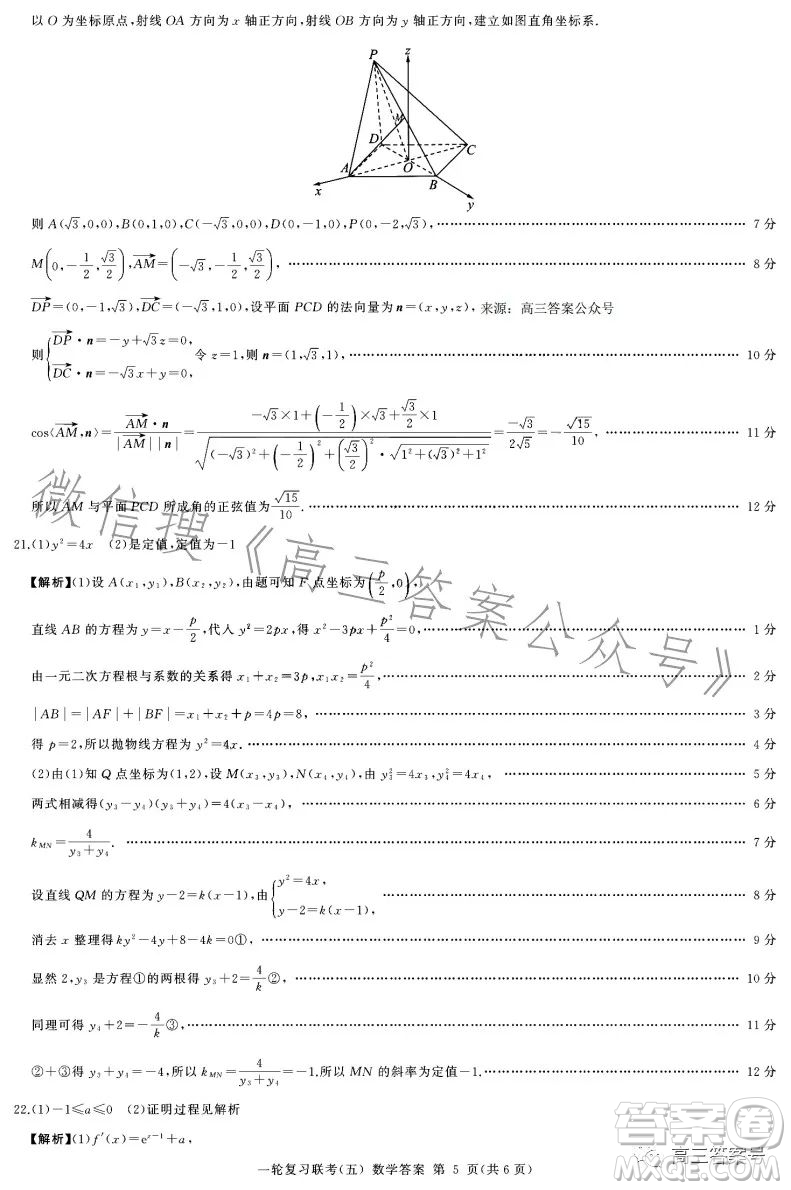 以 O 为坐标原点,射线 OA 方向为 x 轴正方向,射线 OB 方向为 y 轴正方向,建立如图直角坐标系.
P z
M
D C
A O B
x y
则 A(√3,0,0),B(0,1,0),C(-√3,0,0),D(0,-1,0),P(0,-2,√3),…………7 分
M(0,-1/2,√3/2),AM→=(-√3,-1/2,√3/2),…………8 分
DP→=(0,-1,√3),DC→=(-√3,1,0),设平面 PCD 的法向量为 n=(x,y,z), 来源:高三答案公众号
则{DP→·n=-y+√3z=0, DC→·n=-√3x+y=0, 令 z=1,则 n=(1,√3,1),…………10 分
cos⟨AM→,n⟩=AM→·n/|AM→||n|=(-√3×1+(-1/2)×√3+√3/2×1)/√((-√3)²+(-1/2)²+(√3/2)²·√(1²+(√3)²+1²))=-√3/2√5=-√15/10,…………11 分
所以 AM 与平面 PCD 所成角的正弦值为√15/10.…………12 分
21.(1)y²=4x (2)是定值,定值为-1
【解析】(1)设 A(x₁,y₁),B(x₂,y₂),由题可知 F 点坐标为(p/2,0),
直线 AB 的方程为 y=x-p/2,代人 y²=2px,得 x²-3px+p²/4=0,…………1 分
由一元二次方程根与系数的关系得 x₁+x₂=3p,x₁x₂=p²/4,…………2 分
|AB|=|AF|+|BF|=x₁+x₂+p=4p=8,…………3 分
得 p=2,所以抛物线方程为 y²=4x.…………4 分
(2)由(1)知 Q 点坐标为(1,2),设 M(x₃,y₃),N(x₄,y₄),由 y₃²=4x₃,y₄²=4x₄,…………5 分
两式相减得(y₃-y₄)(y₃+y₄)=4(x₃-x₄),…………6 分
k_MN=4/(y₃+y₄).…………7 分
设直线 QM 的方程为 y-2=k(x-1),由{y²=4x, y-2=k(x-1),…………8 分
消去 x 整理得 ky²-4y+8-4k=0①,…………9 分
显然 2,y₃ 是方程①的两根得 y₃+2=4/k②,…………10 分
同理可得 y₄+2=-4/k③,…………11 分
②+③得 y₃+y₄=-4,所以 k_MN=4/(y₃+y₄)=-1,所以 MN 的斜率为定值-1.…………12 分
22.(1)-1≤a≤0 (2)证明过程见解析
【解析】(1)f′(x)=e^(x-1)+a,
一轮复习联考(五) 数学答案 第 5 页(共 6 页)
微信搜《高三答案公众号》
高三答案号
答案圈
MXQE.COM